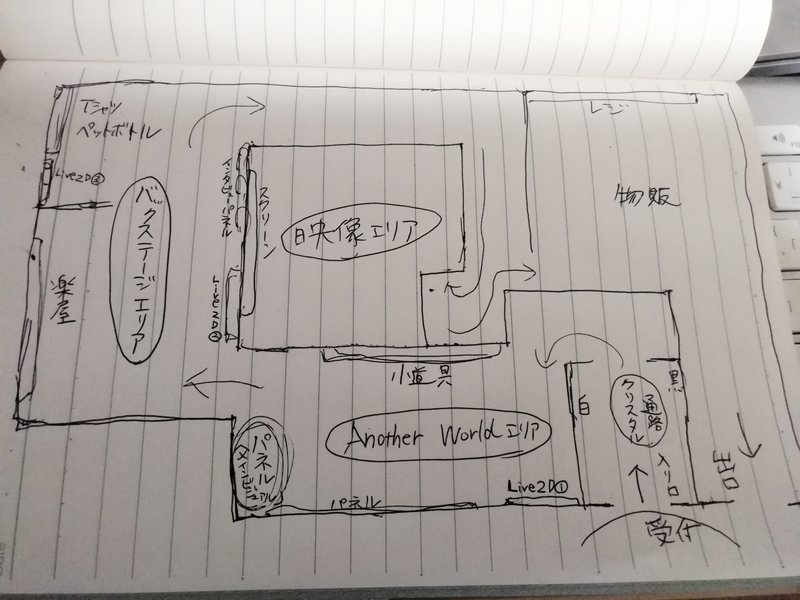 Tシャツ
ペットボトル
Live2D③
バックステージエリア
楽屋
インタビューパネル
スクリーン
Live2D②
映像エリア
レジ
物販
小道具
Another Worldエリア
白
クリスタル
通路
黒
入り口
出口
受付
パネル
メインビジュアル
パネル
Live2D①